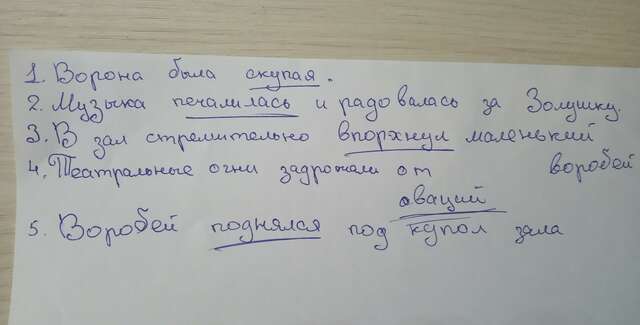 1. Ворона была скупая.
2. Музыка печалилась и радовалась за Золушку.
3. В зал стремительно впорхнул маленький
воробей
4. Театральные огни задрожали от
оваций
5. Воробей поднялся под купол зала